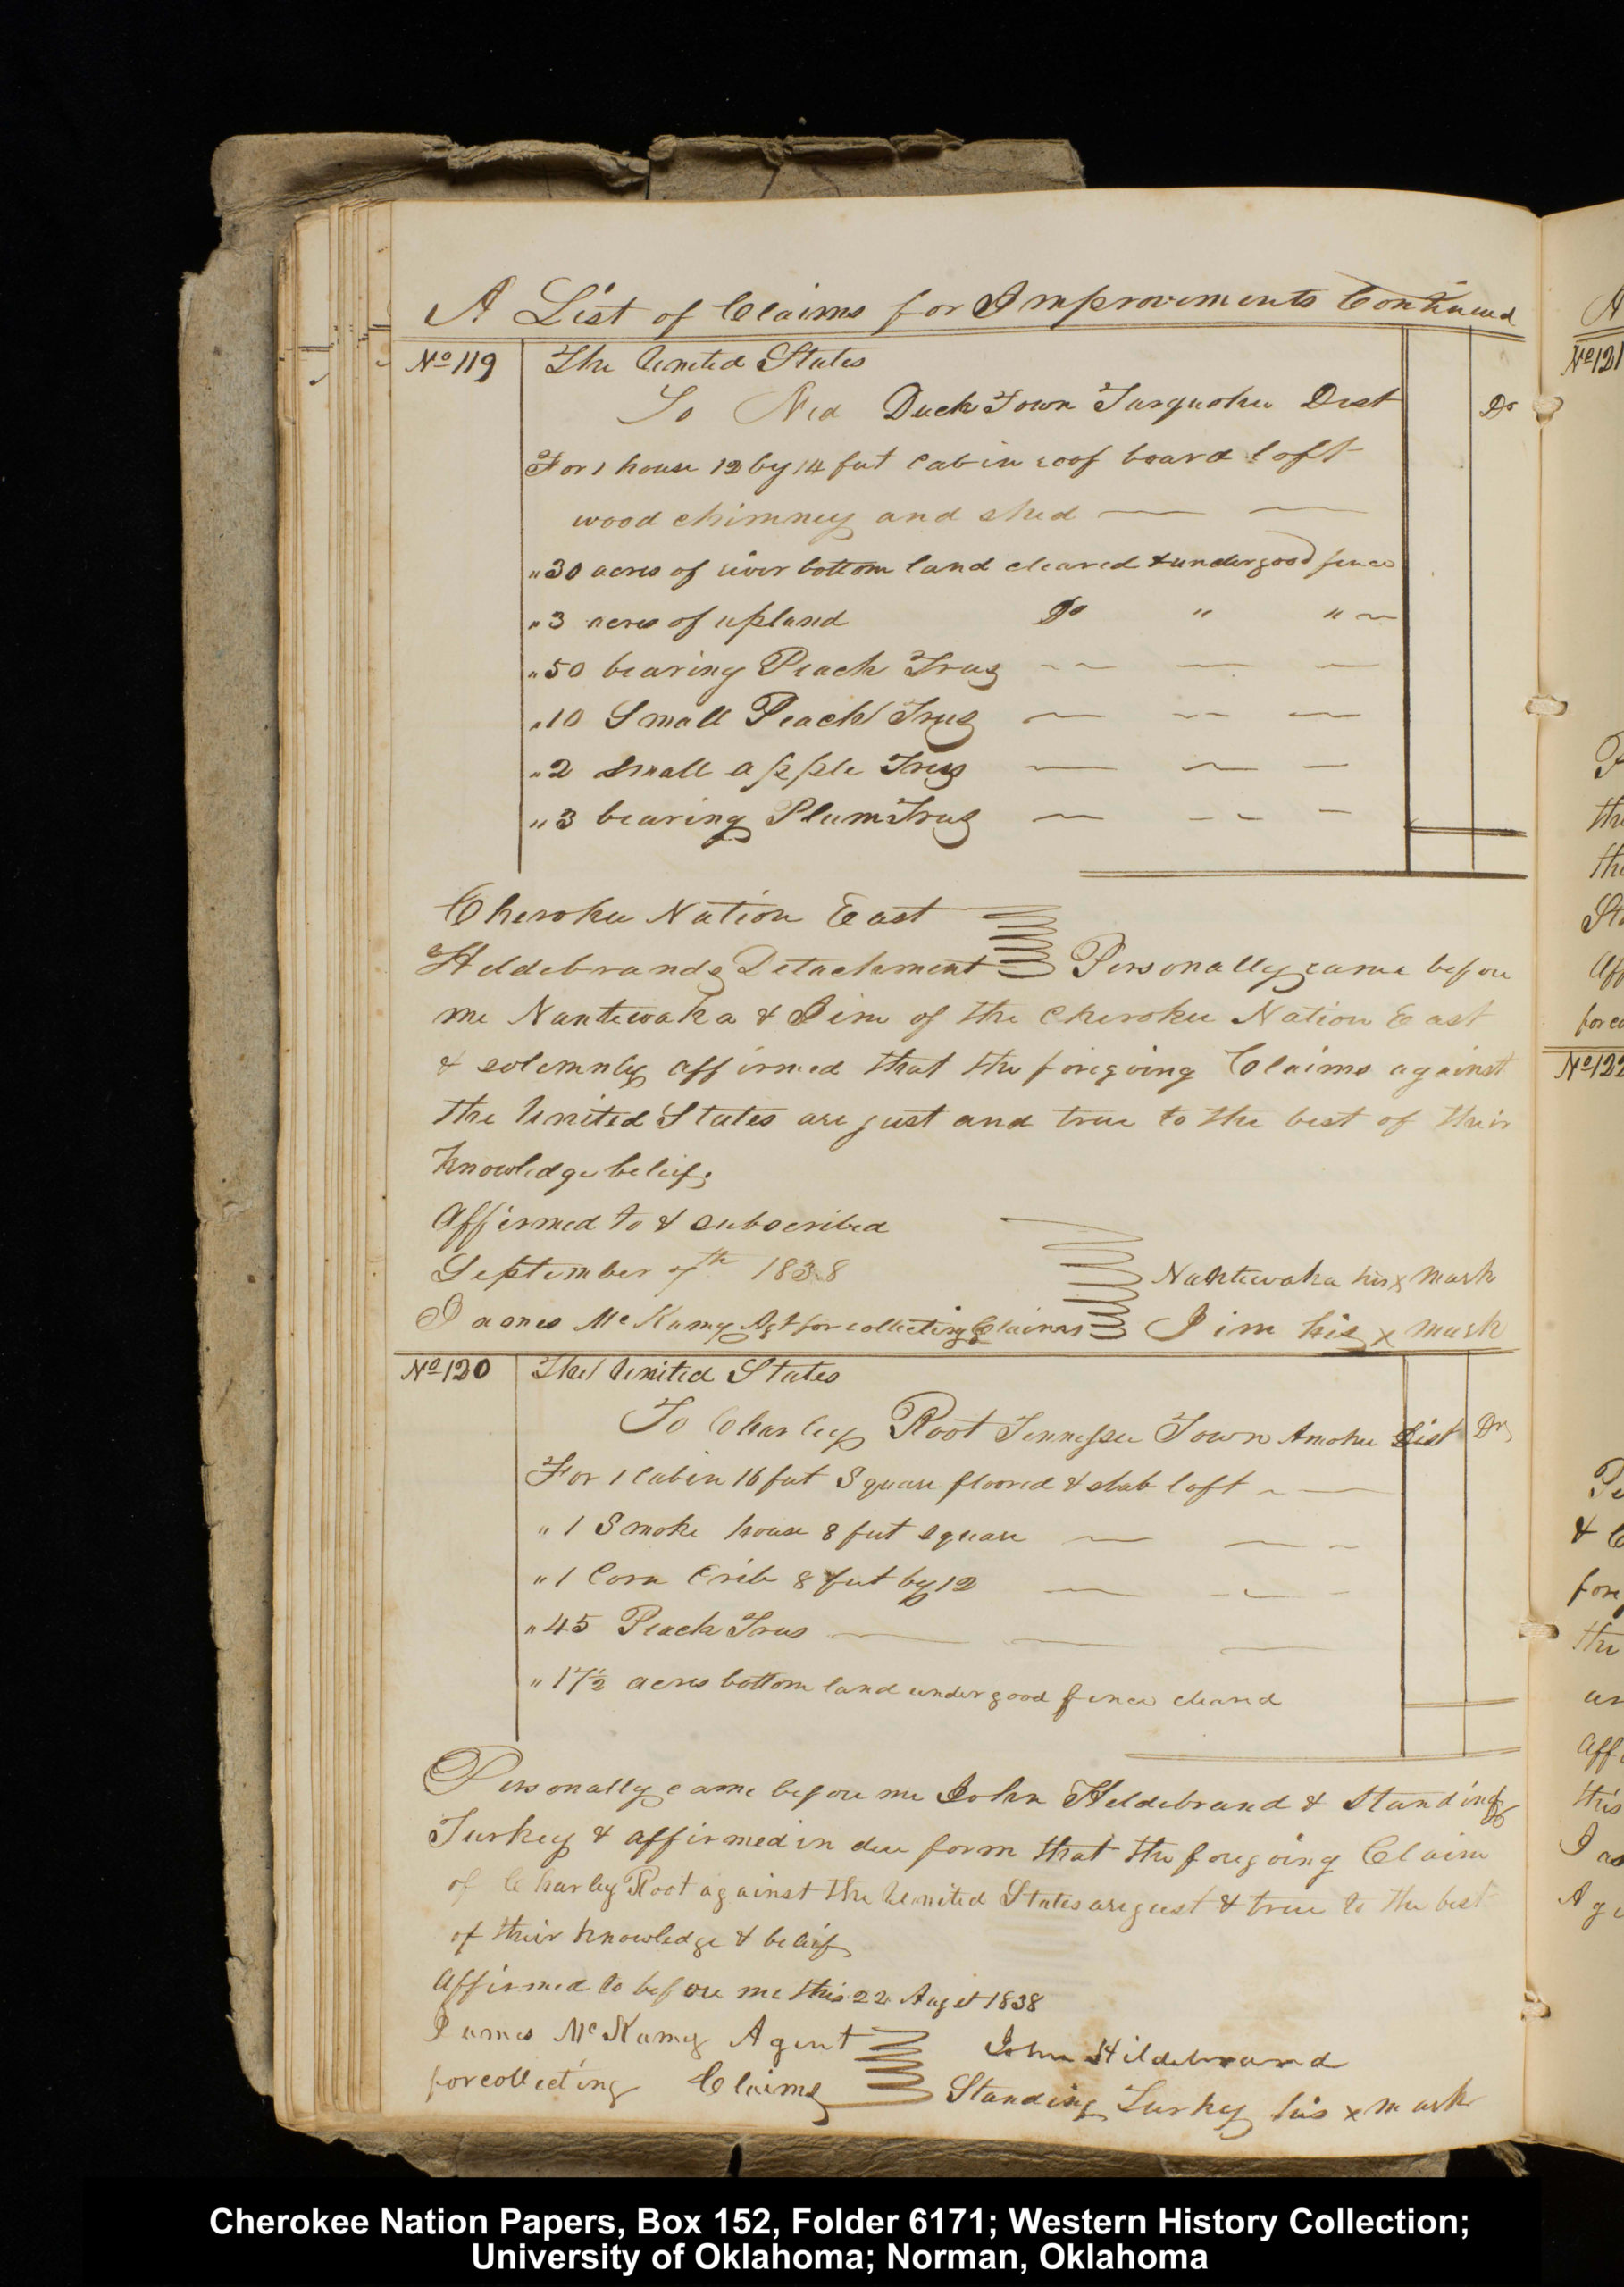 A List of Claims for Improvements Continued
No 119 The United States
To Ned Duck Town Tarquohee Dist Dr
For 1 house 12 by 14 feet cabin roof board loft
wood chimney and shed
" 30 acres of river bottom land cleared & under good fence
" 3 acres of upland Do " "
" 50 bearing Peach Trees
" 10 Small Peach Trees
" 2 small apple Trees
" 3 bearing Plum Trees
Cherokee Nation East
Heldebrands Detachment Personally came before
me Nantewaka & Jim of the Cherokee Nation East
& solemnly affirmed that the foregoing Claims against
the United States are just and true to the best of their
knowledge belief
Affirmed to & subscribed
September 7th 1838 Nantewaka his x mark
James McKamy Agt for collecting Claims Jim his x mark
No 120 The United States
To Charley Root Tennessee Town Amohe Dist Dr
For 1 Cabin 16 feet Square floored & slab loft
" 1 Smoke house 8 feet square
" 1 Corn Crib 8 feet by 12
" 45 Peach Trees
" 17½ acres bottom land under good fence cleared
Personally came before me John Heldebrand & Standing
Turkey & affirmed in due form that the foregoing Claim
of Charley Root against the United States are just & true to the best
of their knowledge & belief
Affirmed to before me this 22 August 1838
James McKamy Agent John Hildebrand
for collecting Claims Standing Turkey his x mark
No 121
No 122
Cherokee Nation Papers, Box 152, Folder 6171; Western History Collection;
University of Oklahoma; Norman, Oklahoma